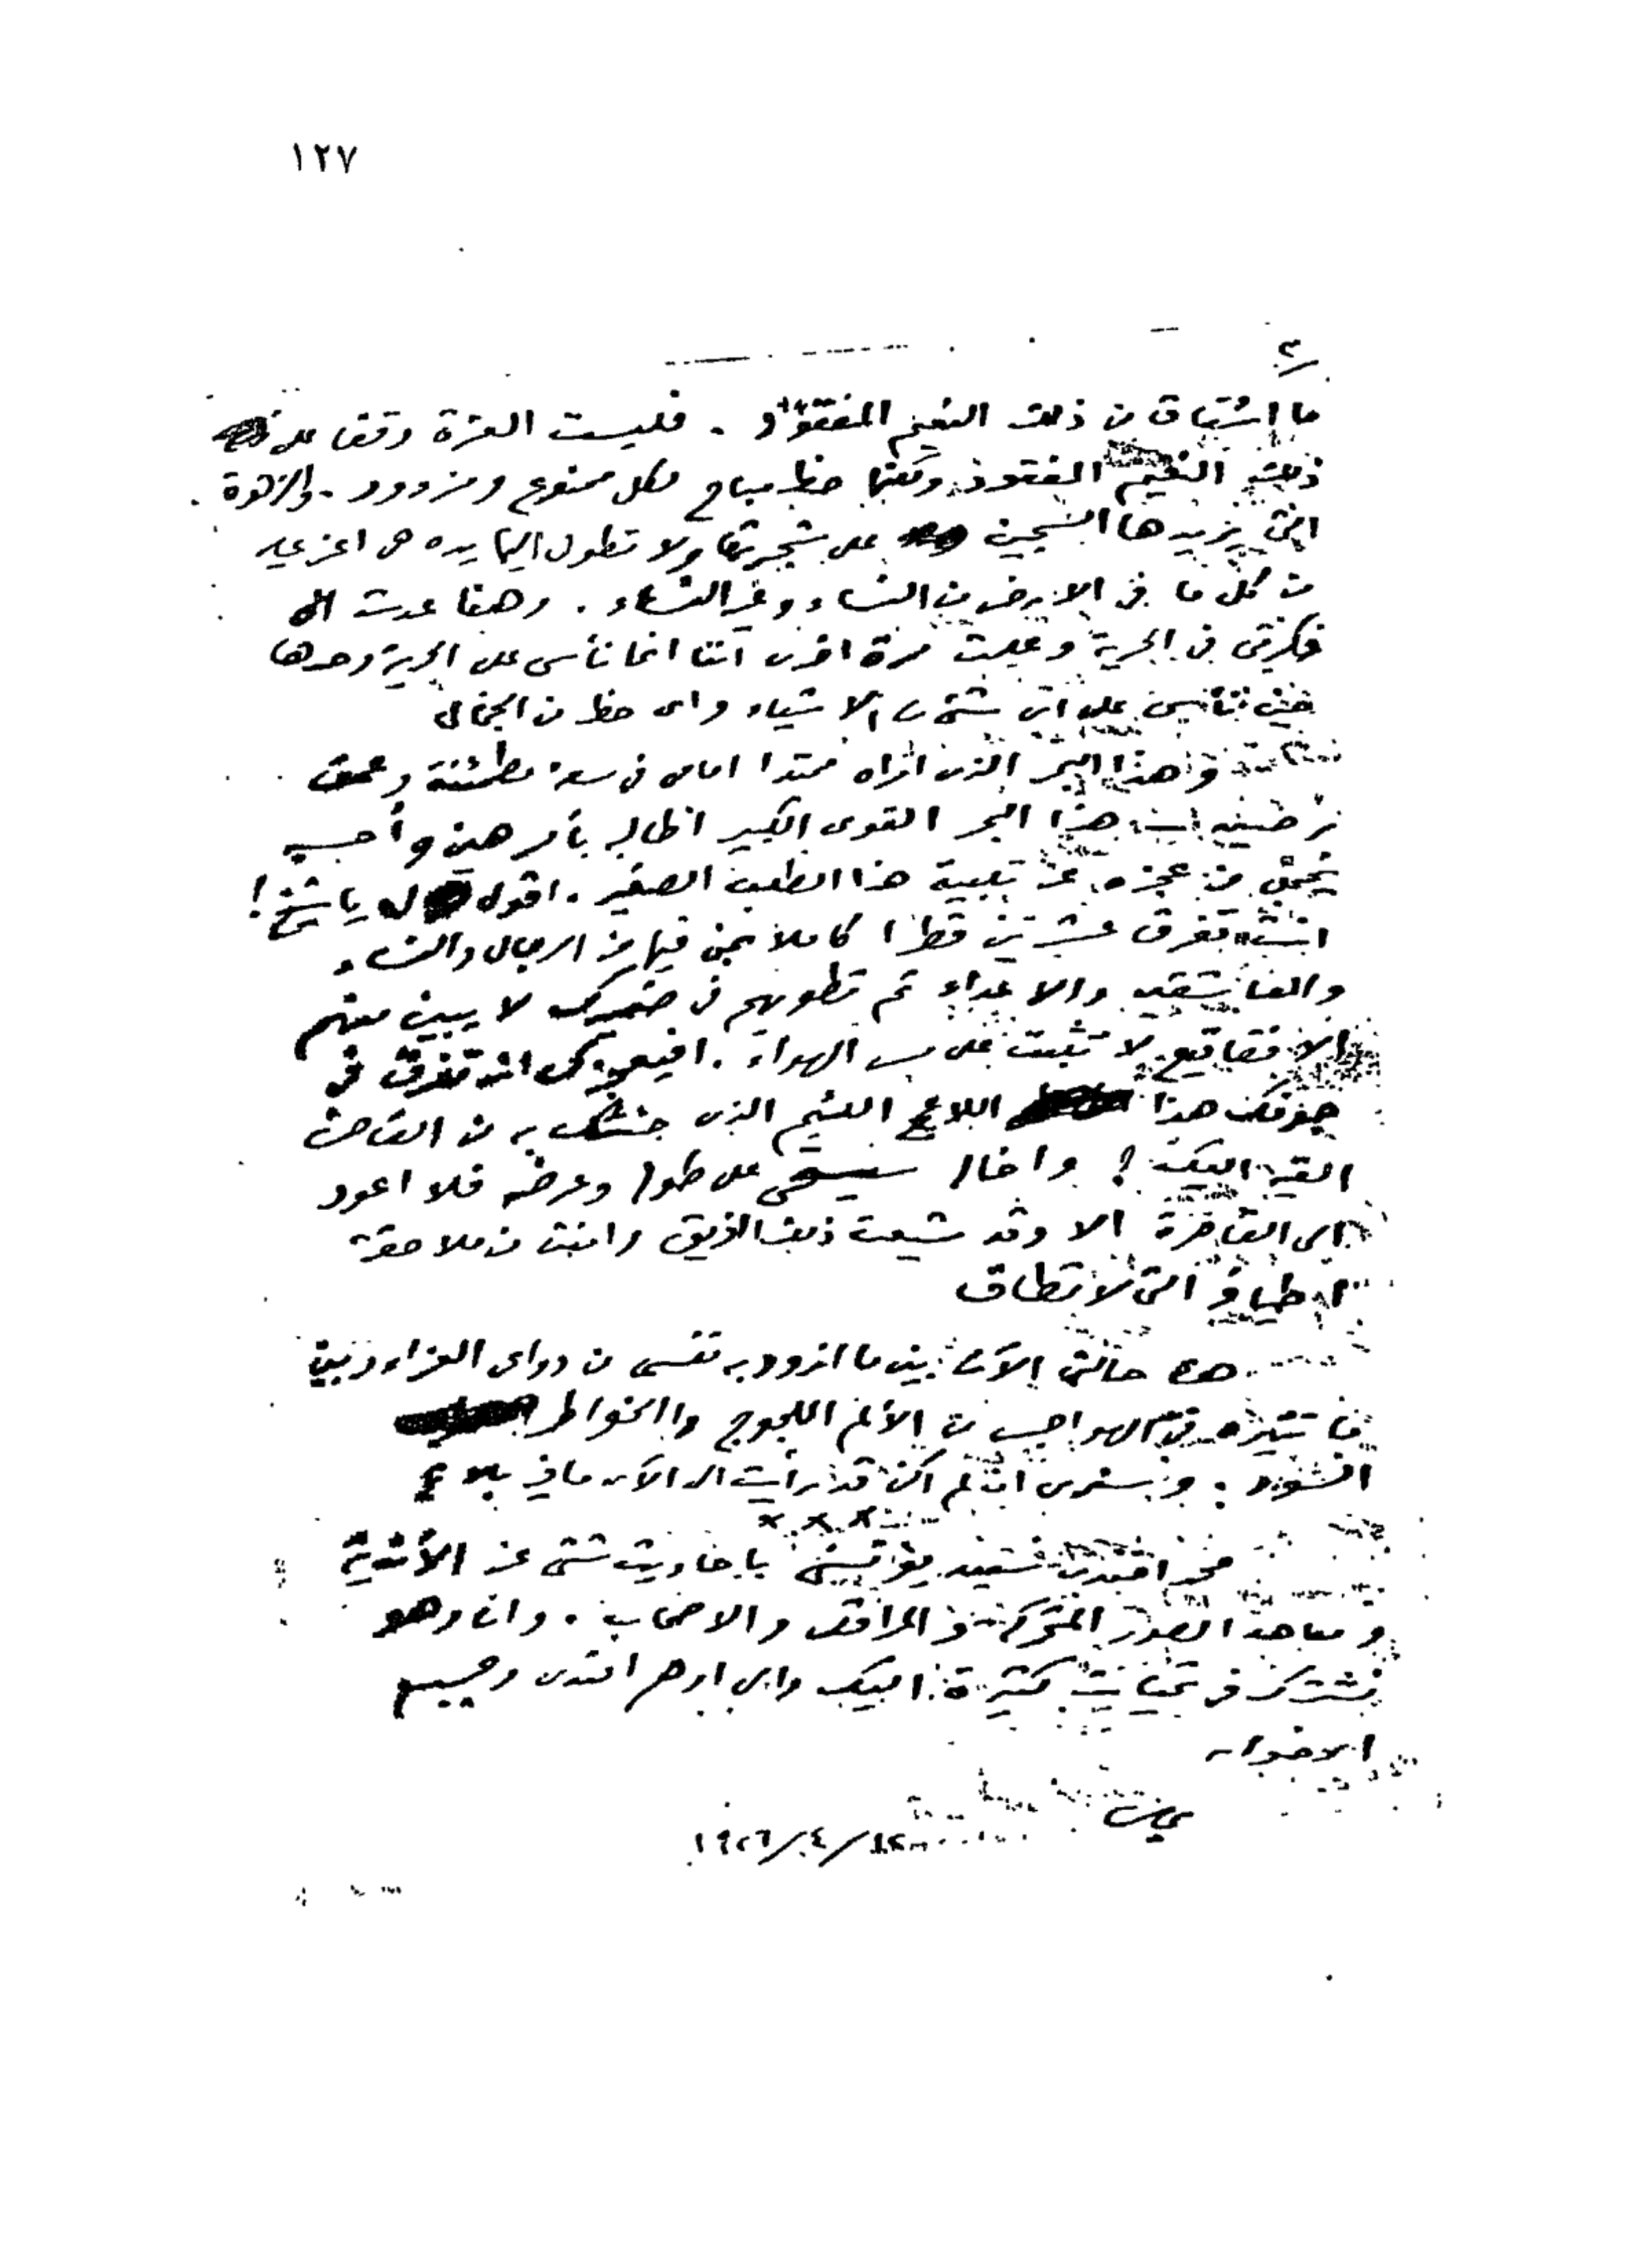 ١٢٧
٢
ما اشتياق من ذلك النعيم المفقود . فليست العزة وقفا على
ذلك النعيم المفقود ولكنها حظ مباح لكل ممنوع ومزدود . والزهرة
التى يريدها السجين على شجرتها ولا تطول اليها يده هى اعز عليه
من كل ما فى الارض من النساء وغير النساء . وهنا عدت الى
فكرتى فى الحرية وعلمت مرة اخرى اننا انما نأسى على الحرية وحدها
حين نأسى على اى شئ من الاشياء واى حظ من الجمال
وهذا البحر الذى اراه ممتدا امامى فى سعة مطمئنة وعمق
هذا البحر القوى الكبير اطالبه بأمر هين وأحسبه
يخجل من عجزه عن تلبية هذا الطلب الصغير . اقول له يا شيخ !
انت تغرق عشرين قطرا كاملا بمن فيها من الرجال والنساء
والعاشقين والاعداء ثم تطويهم فى ضميرك لا يبين منهم
الا فقاقيع لا تثبت على مس الهواء . افيعييك ان تغرق فى
جوفك هذا اللاعج اللئيم الذى جئتك به من القاهرة
القيه اليك ؟ واخاله سيبقى على طوله وعرضه فلا اعود
الى القاهرة الا وقد شيعت ذلك الغريق وامنت من ملاحقة
اطيافه التى لا تطاق
هذه حالتى الآن بين ما ازود به نفسى من دواعى العزاء وبين
ما تثيره فىّ الهواجس من الألم اللجوج والخواطر
الشرود . وبسترى ان لم اكن قد رأيت الى الآن ما فيه بلاغ
× × ×
محمد افندى يؤنسنى باحاديث شتى عن الأندية
ومعاهد الصور المتحركة والمراقص والاصحاب . وانا وهو
نشترك فى تحيات كثيرة اليك والى ادهم افندى وجميع
الاخوان
١٩٢٦/٤/١٢